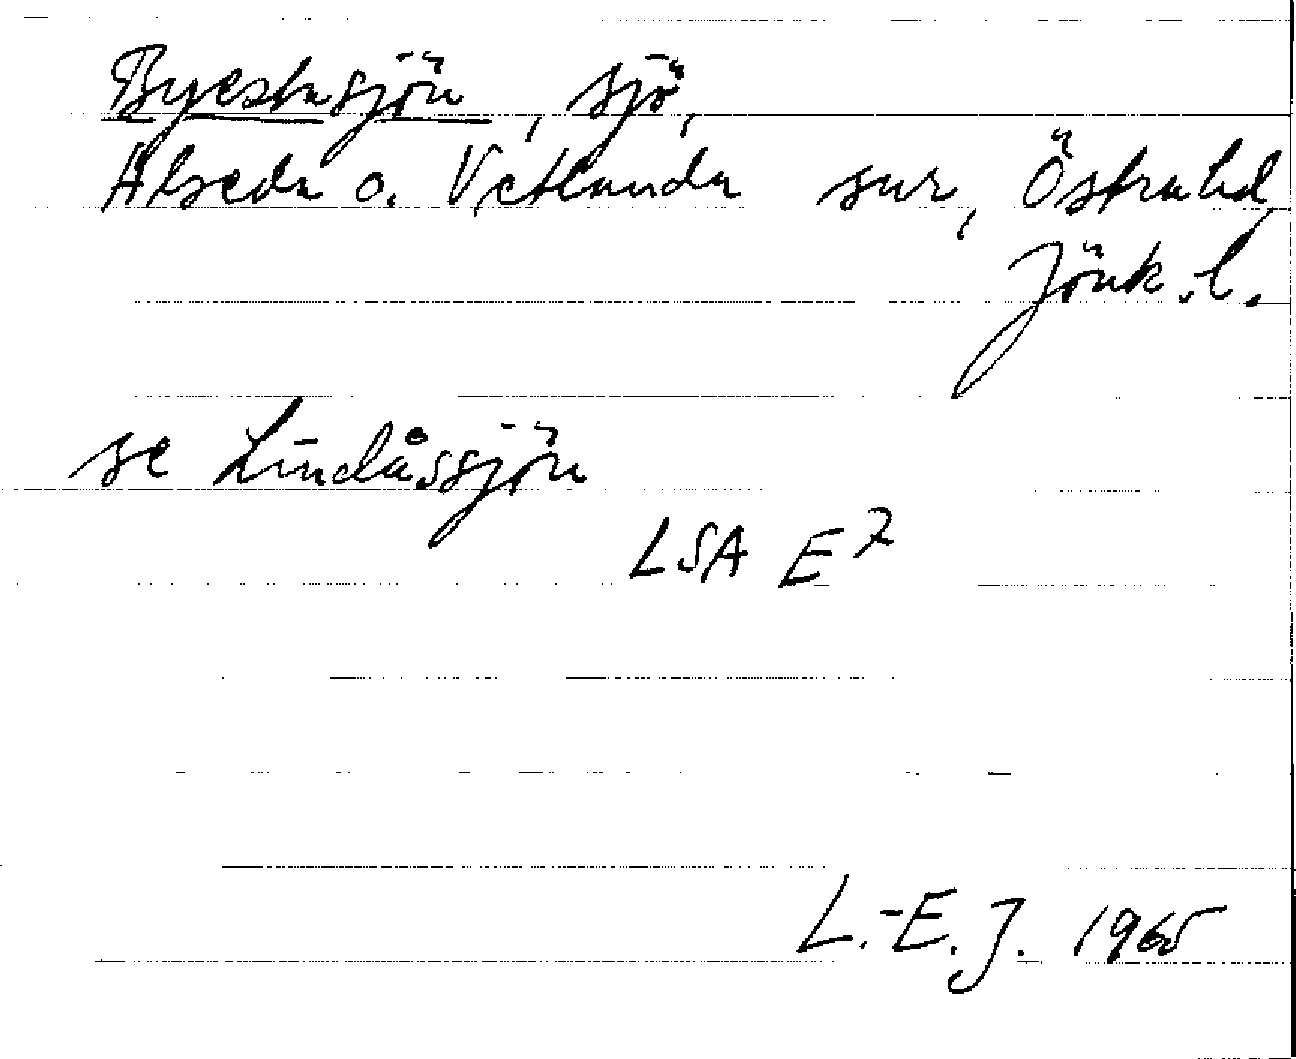 Byestasjön, sjö,
Alseda o. Vetlanda snr, Östra hd,
Jönk. l.
se Lindåssjön
LSA E7
L.-E. J. 1965